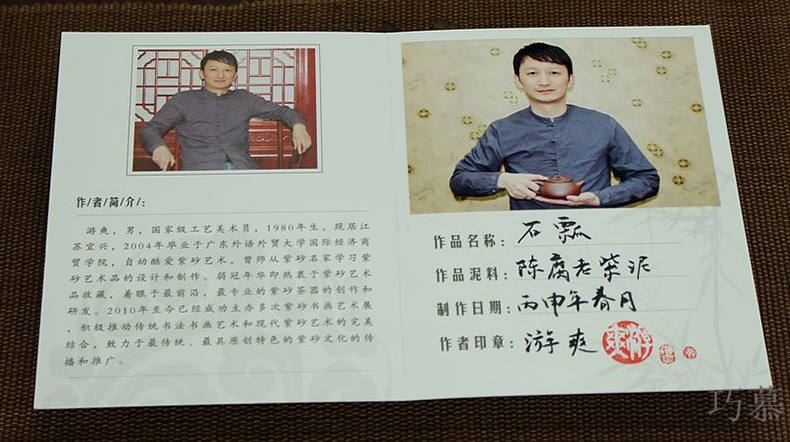 作/者/简/介/:
游爽，男，国家级工艺美术员，1980年生，现居江
苏宜兴，2004年毕业于广东外语外贸大学国际经济商
贸学院，自幼酷爱紫砂艺术，曾师从紫砂名家学习紫
砂艺术品的设计和制作。弱冠年华即热衷于紫砂艺术
品收藏，着眼于最前沿，最专业的紫砂茶器的创作和
研发。2010年至今已经成功主办多次紫砂书画艺术展
，积极推动传统书法书画艺术和现代紫砂艺术的完美
结合，致力于最传统、最具原创特色的紫砂文化的传
播和推广。
作品名称：石瓢
作品泥料：陈腐老紫泥
制作日期：丙申年春月
作者印章：游爽
巧慕